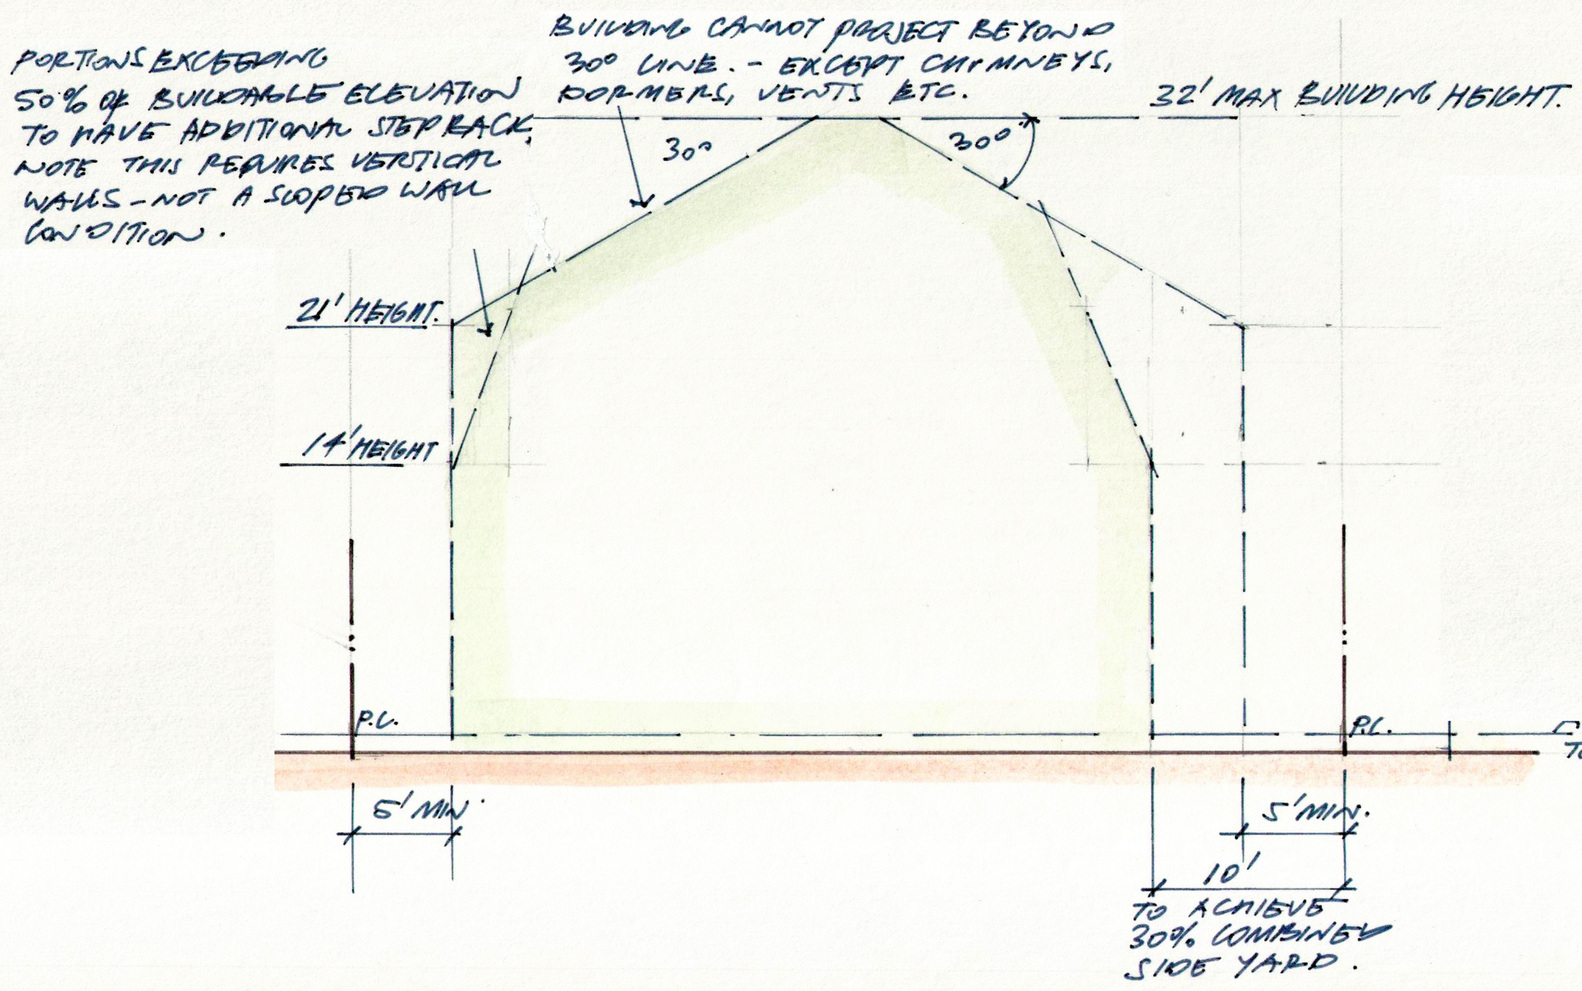 BUILDING CANNOT PROJECT BEYOND
30° LINE. - EXCEPT CHIMNEYS,
DORMERS, VENTS ETC.
PORTIONS EXCEEDING
50% OF BUILDABLE ELEVATION
TO HAVE ADDITIONAL STEP BACK,
NOTE THIS REQUIRES VERTICAL
WALLS - NOT A SLOPED WALL
CONDITION.
32' MAX BUILDING HEIGHT.
30°
30°
21' HEIGHT.
14' HEIGHT
P.L.
P.L.
5' MIN.
5' MIN.
10'
TO ACHIEVE
30% COMBINED
SIDE YARD.